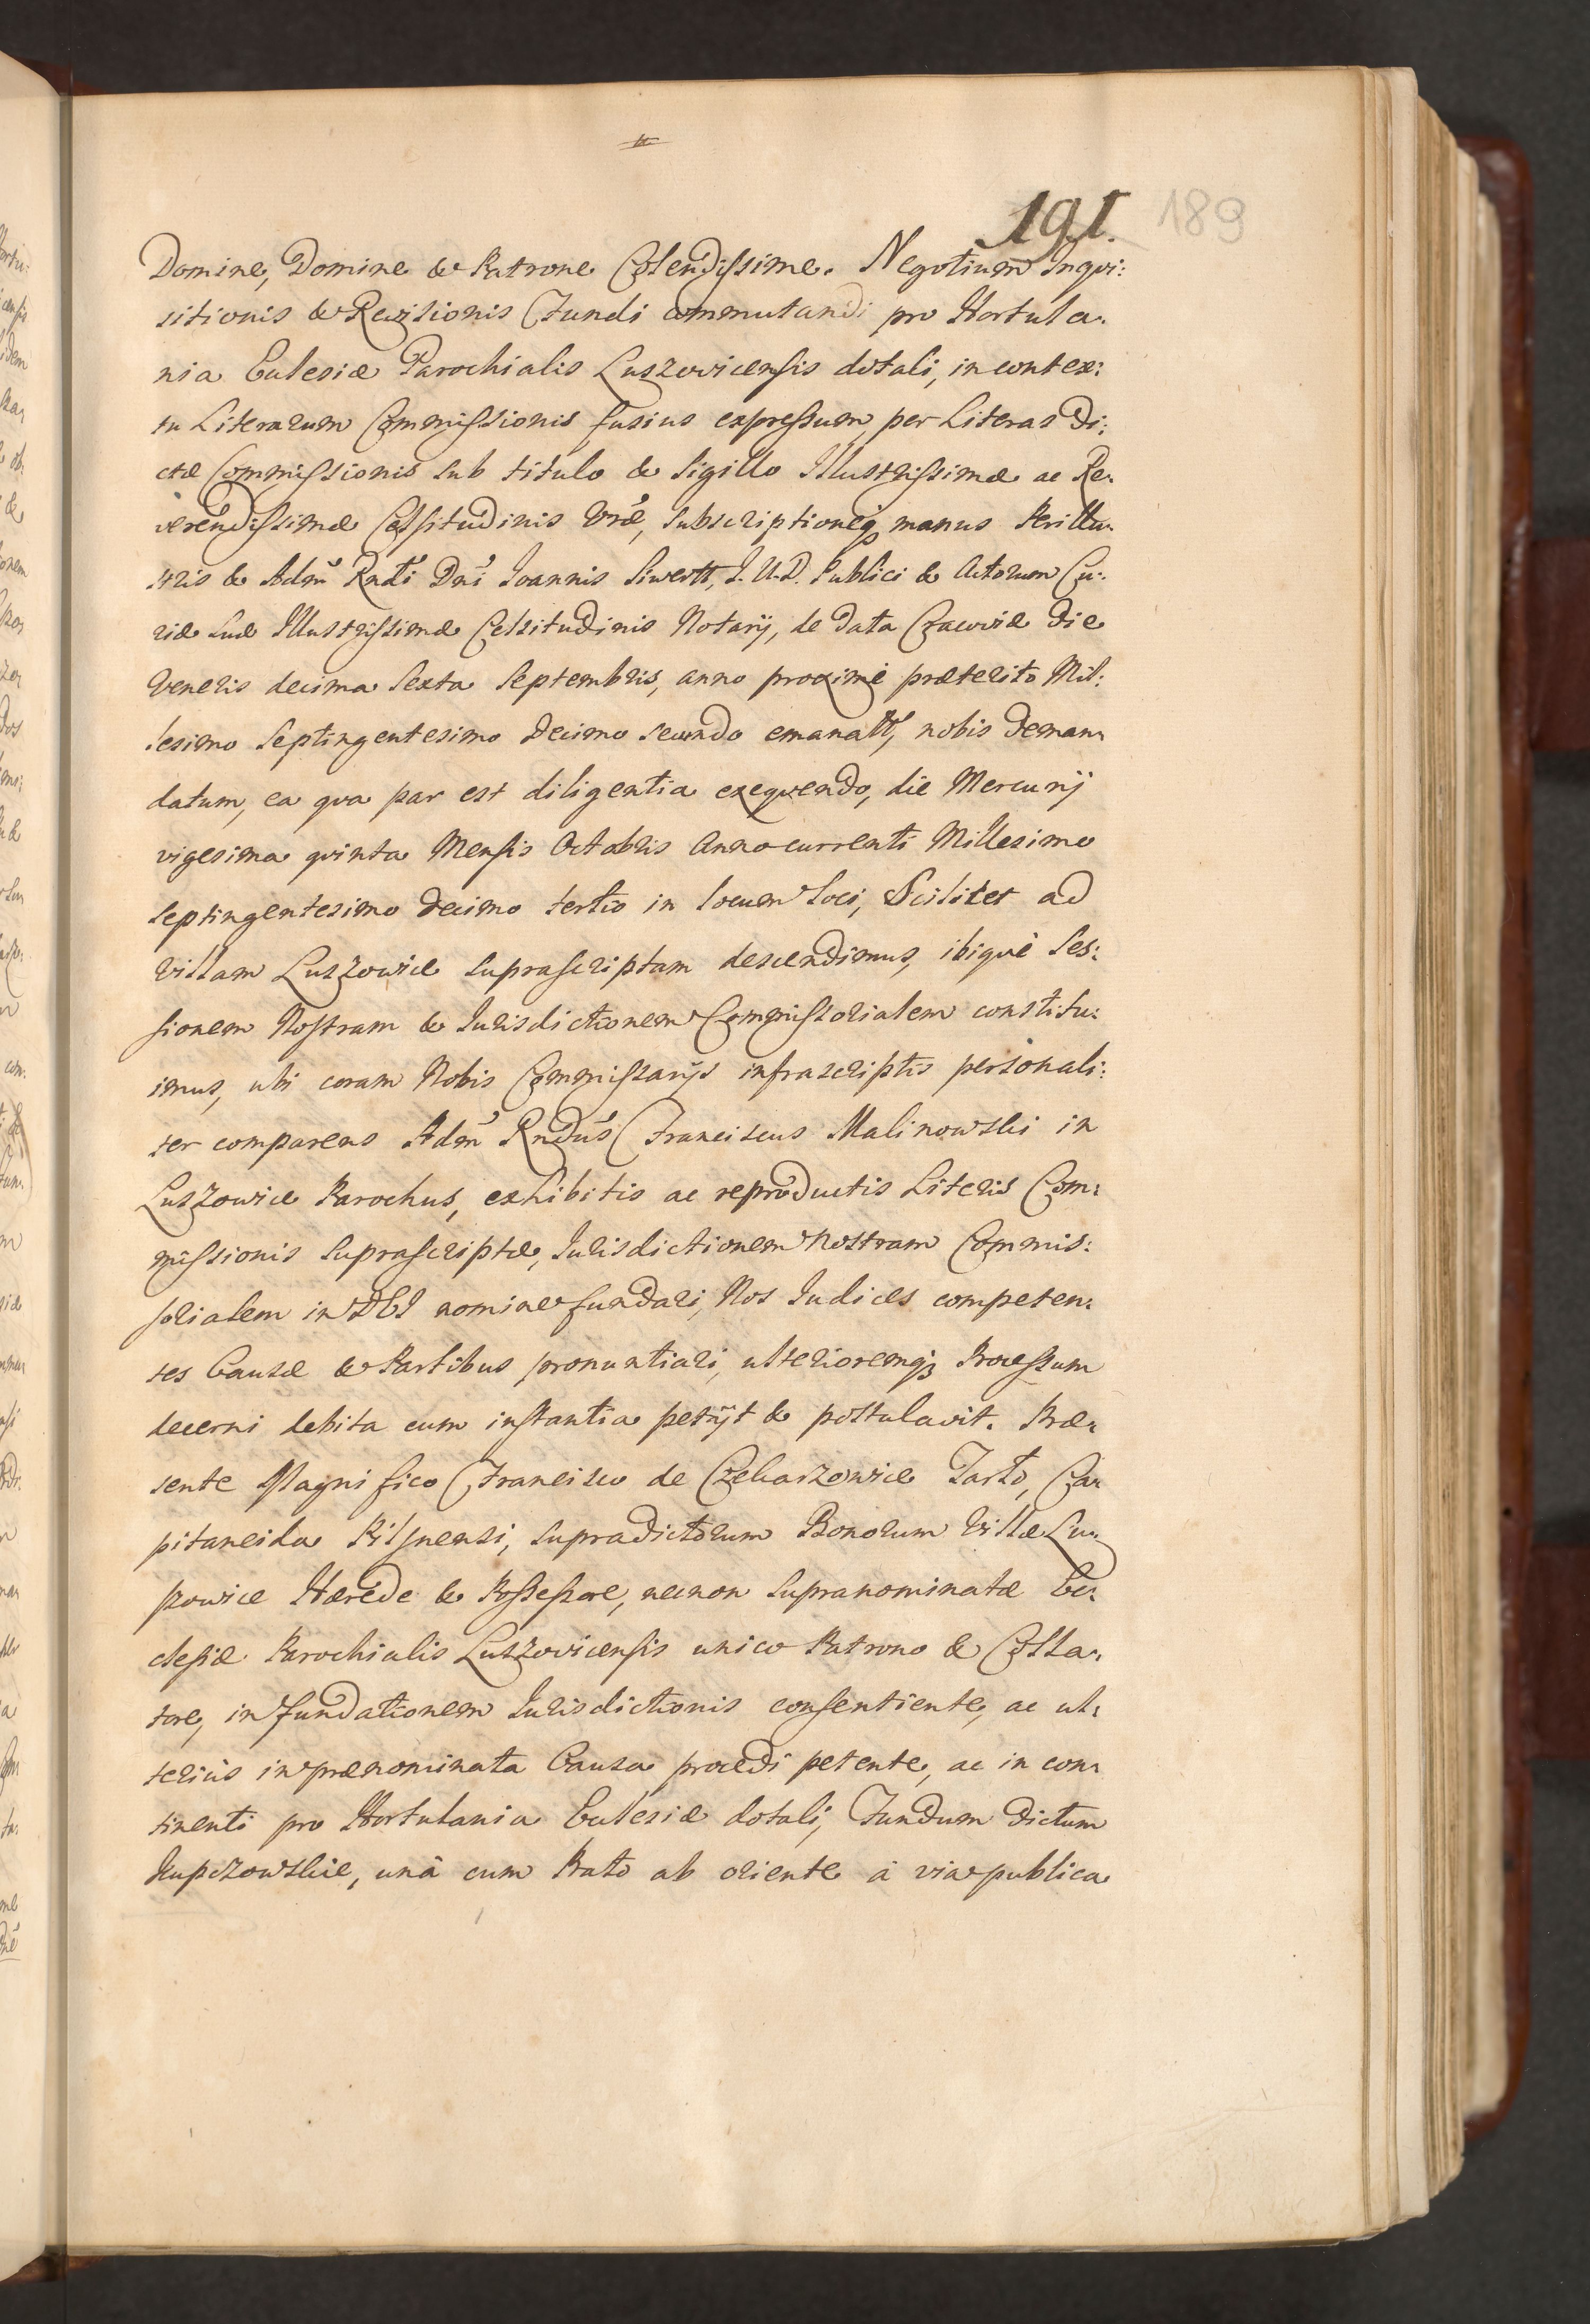 191. 189
Domine, Domine & Patrone Colendissime. Negotium Inqvi:
sitionis & Revisionis Fundi commutandi pro Hortula:
nia Ecclesiæ Parochialis Luszovicensis dotali, in contex:
tu Literarum Commissionis fusius expressum, per Literas Di:
ctæ Commissionis sub titulo & sigillo Illustrissimæ ac Re:
verendissimæ Celsitudinis Vræ, subscriptioneq; manus Perillu:
stris & Adm Rndi Dni Joannis Siwertt, J.U.D. Publici & Actorum Cu:
riæ suæ Illustrissimæ Celsitudinis Notarij, de data Cracoviæ die
Veneris decima sexta Septembris, anno proxime præterito Mil:
lesimo Septingentesimo Decimo secundo emanatt, nobis deman:
datum, ea qva par est diligentia exeqvendo, die Mercurij
vigesima qvinta Mensis Octobris Anno currenti Millesimo
Septingentesimo Decimo tertio in locum loci, Scilicet ad
Villam Luszowice suprascriptam descendimus, ibiqve Ses:
sionem Nostram & Jurisdictionem Commissorialem constitu:
imus, ubi coram Nobis Commissarijs infrascriptis personali:
ter comparens Adm Rndus Franciscus Malinowski in
Luszowice Parochus, exhibitis ac reproductis Literis Com:
missionis suprascriptæ, Jurisdictionem Nostram Commis:
sorialem in DEI nomine fundari, Nos Judices competen:
tes Causæ & Partibus pronuntiari, ulterioremq; Processum
decerni debita cum instantia petijt & postulavit. Præ:
sente Magnifico Francisco de Czekarzowice Tarło, Ca:
pitaneida Pilsnensi, supradictorum Bonorum Villæ Lu:
szowice Hærede & Possessore, necnon supranominatæ Ec:
clesiæ Parochialis Luszovicensis unico Patrono & Colla:
tore, in fundationem Jurisdictionis consentiente, ac ul:
terius in prænominata Causa procedi petente, ac in con:
tinenti pro Hortulania Ecclesiæ dotali, Fundum dictum
Kupczowskie, unâ cum Prato ab oriente à via publica